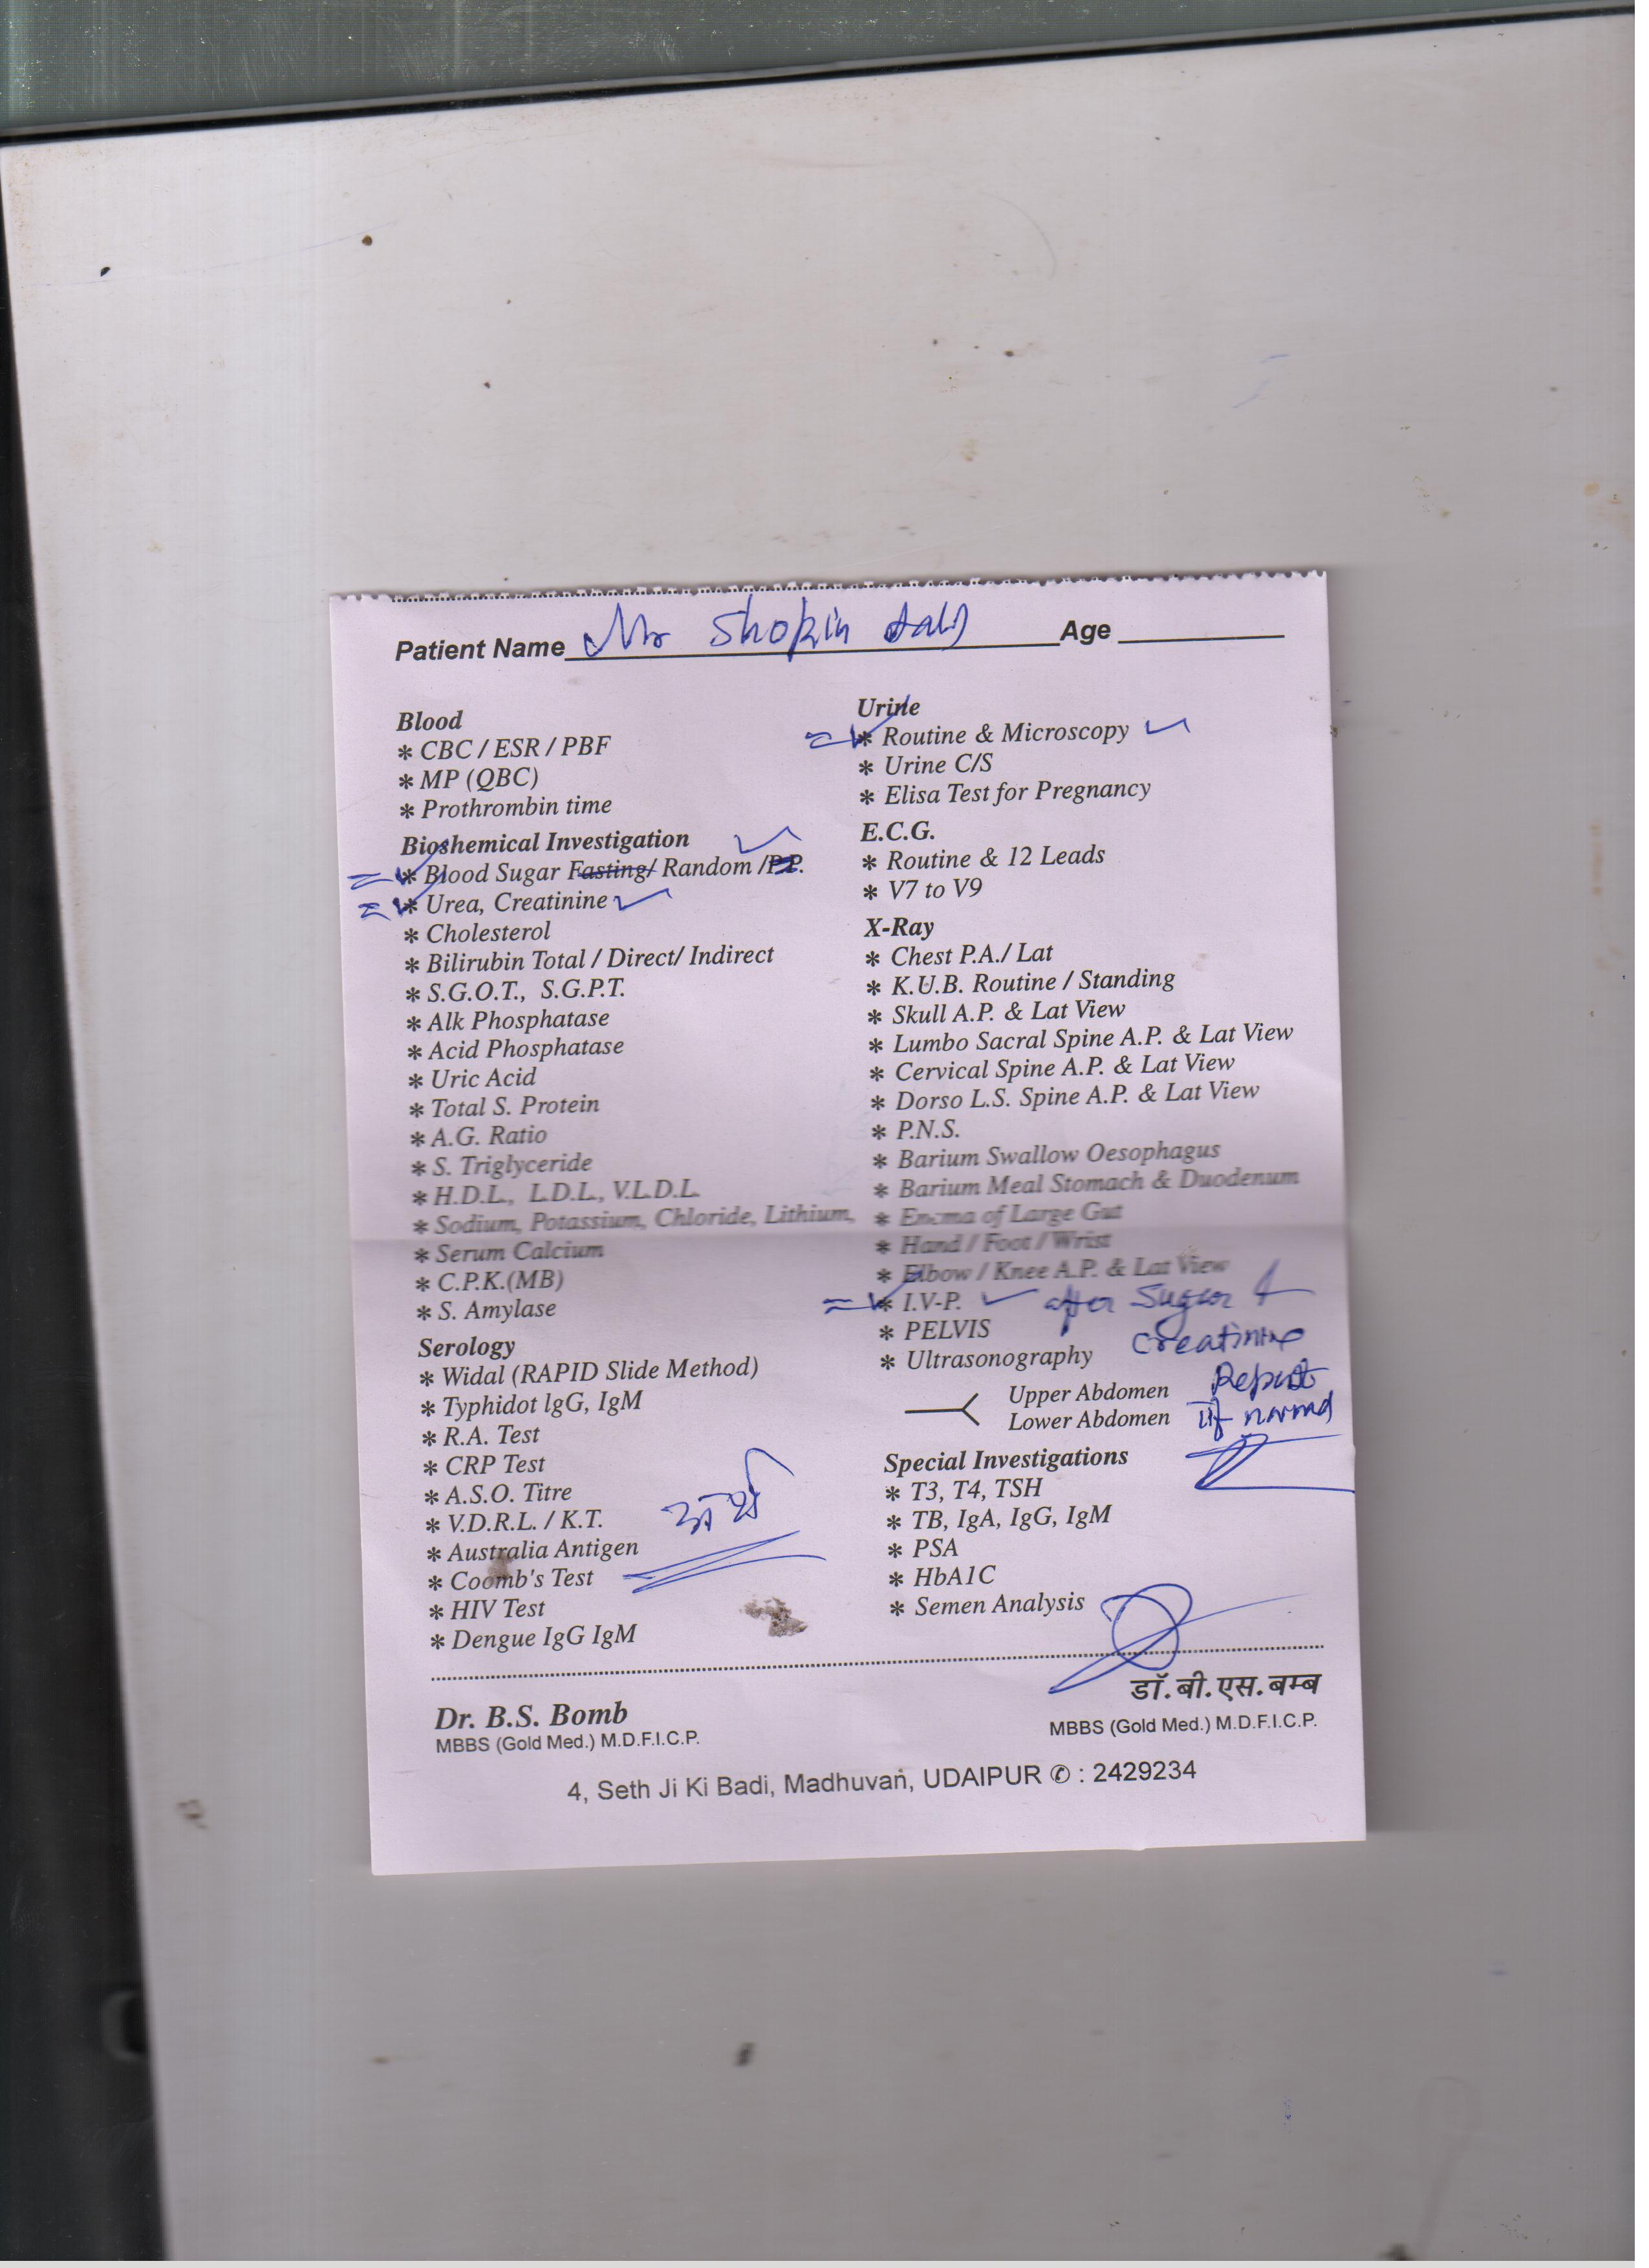 Patient Name Mr Shokin Age
Blood
* CBC / ESR / PBF
* MP (QBC)
* Prothrombin time
Biochemical Investigation
* Blood Sugar Fasting/ Random /P.P.
* Urea, Creatinine
* Cholesterol
* Bilirubin Total / Direct/ Indirect
* S.G.O.T., S.G.P.T.
* Alk Phosphatase
* Acid Phosphatase
* Uric Acid
* Total S. Protein
* A.G. Ratio
* S. Triglyceride
* H.D.L., L.D.L., V.L.D.L.
* Sodium, Potassium, Chloride, Lithium,
* Serum Calcium
* C.P.K.(MB)
* S. Amylase
Serology
* Widal (RAPID Slide Method)
* Typhidot lgG, IgM
* R.A. Test
* CRP Test
* A.S.O. Titre
* V.D.R.L. / K.T.
* Australia Antigen
* Coomb's Test
* HIV Test
* Dengue IgG IgM
Urine
* Routine & Microscopy
* Urine C/S
* Elisa Test for Pregnancy
E.C.G.
* Routine & 12 Leads
* V7 to V9
X-Ray
* Chest P.A./ Lat
* K.U.B. Routine / Standing
* Skull A.P. & Lat View
* Lumbo Sacral Spine A.P. & Lat View
* Cervical Spine A.P. & Lat View
* Dorso L.S. Spine A.P. & Lat View
* P.N.S.
* Barium Swallow Oesophagus
* Barium Meal Stomach & Duodenum
* Enema of Large Gut
* Hand / Foot / Wrist
* Elbow / Knee A.P. & Lat View
* I.V-P. after Sugar &
* PELVIS
creatinine
* Ultrasonography
Report
Upper Abdomen
Lower Abdomen if normal
Special Investigations
* T3, T4, TSH
* TB, IgA, IgG, IgM
* PSA
* HbA1C
* Semen Analysis
Dr. B.S. Bomb
MBBS (Gold Med.) M.D.F.I.C.P.
डॉ.बी.एस.बम्ब
MBBS (Gold Med.) M.D.F.I.C.P.
4, Seth Ji Ki Badi, Madhuvan, UDAIPUR ✆ : 2429234